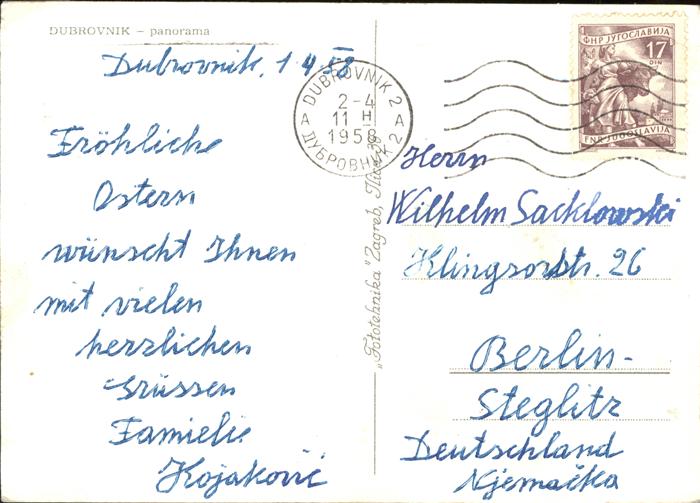 DUBROVNIK – panorama
Dubrovnik, 1 4 58
Fröhliche
Ostern
wünscht Ihnen
mit vielen
herzlichen
Grüssen
Famielie
Kojaković
"Fototehnika" Zagreb,
DUBROVNIK 2
2-4
11 H
1958
A A
ДУБРОВНИК 2
ФНР ЈУГОСЛАВИЈА
17
DIN
FNR JUGOSLAVIJA
Herrn
Wilhelm Sacklowski
Klingsorstr. 26
Berlin-
Steglitz
Deutschland
Njemačka